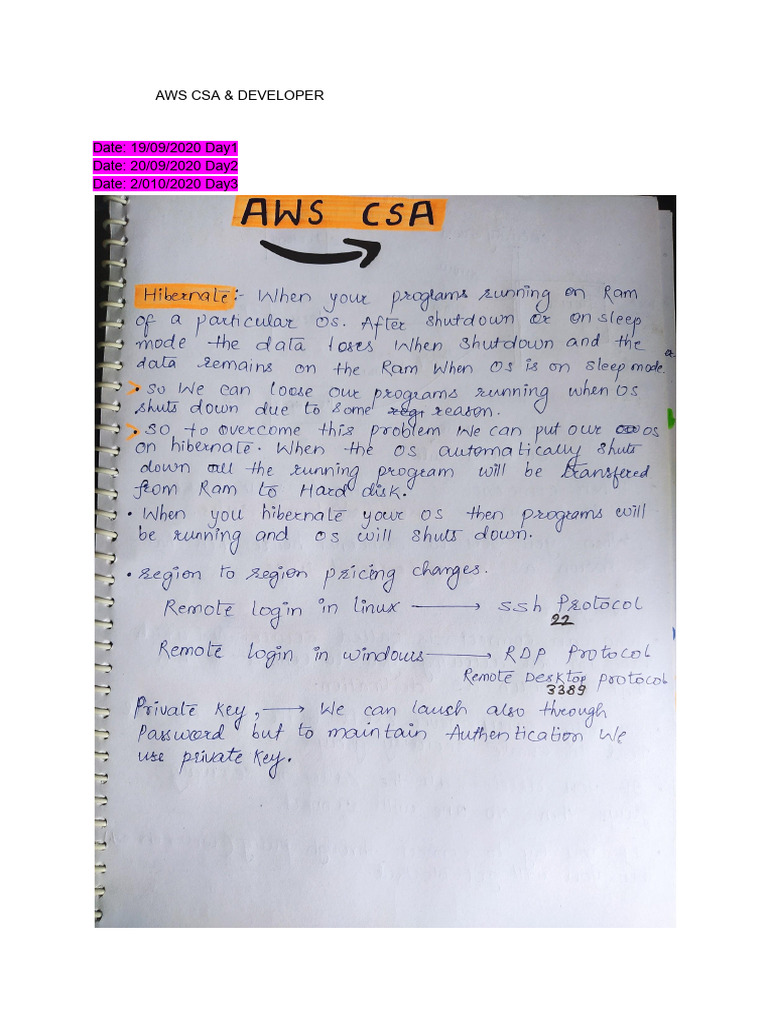 AWS CSA & DEVELOPER
Date: 19/09/2020 Day1
Date: 20/09/2020 Day2
Date: 2/010/2020 Day3
AWS CSA
Hibernate:- When your programs running on Ram
of a particular OS. After shutdown or on sleep
mode the data loses when shutdown and the
data remains on the Ram when OS is on sleep mode.
> • So We can loose our programs running when OS
shuts down due to some reason.
> • SO to overcome this problem We can put our OS
on hibernate. When the OS automatically shuts
down all the running program will be transfered
from Ram to Hard disk.
• When you hibernate your OS then programs will
be running and OS will shuts down.
• region to region pricing changes.
Remote login in linux → SSh Protocol
22
Remote login in windows → RDP Protocol
Remote Desktop protocol
3389
Private key, → We can lauch also through
Password but to maintain Authentication We
use private key.